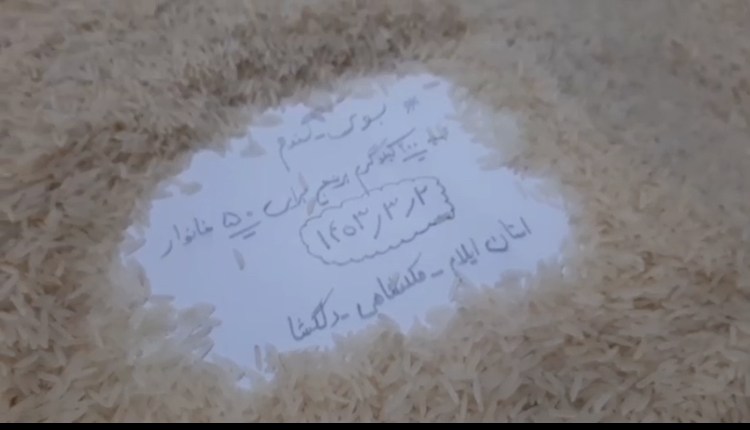 # بوی_گندم
۱۰۰ کیلوگرم برنج برای ۵۰ خانوار
۱۴۰۳/۳/۲
استان ایلام - ملکشاهی - دلگشا